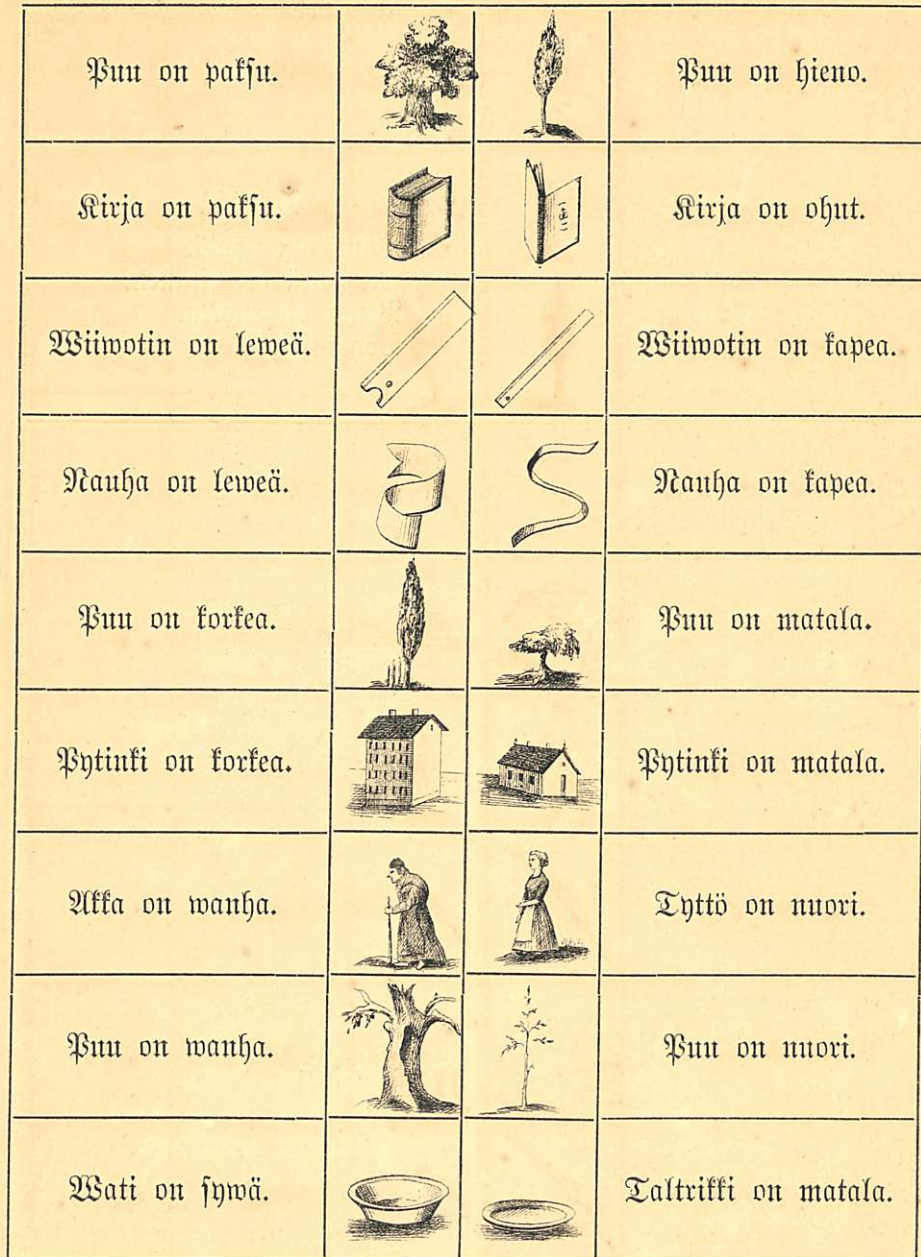 Puu on paksu.
Puu on hieno.
Kirja on paksu.
Kirja on ohut.
Wiiwotin on leweä.
Wiiwotin on kapea.
Nauha on leweä.
Nauha on kapea.
Puu on korkea.
Puu on matala.
Pytinki on korkea.
Pytinki on matala.
Akka on wanha.
Tyttö on nuori.
Puu on wanha.
Puu on nuori.
Wati on sywä.
Taltrikki on matala.